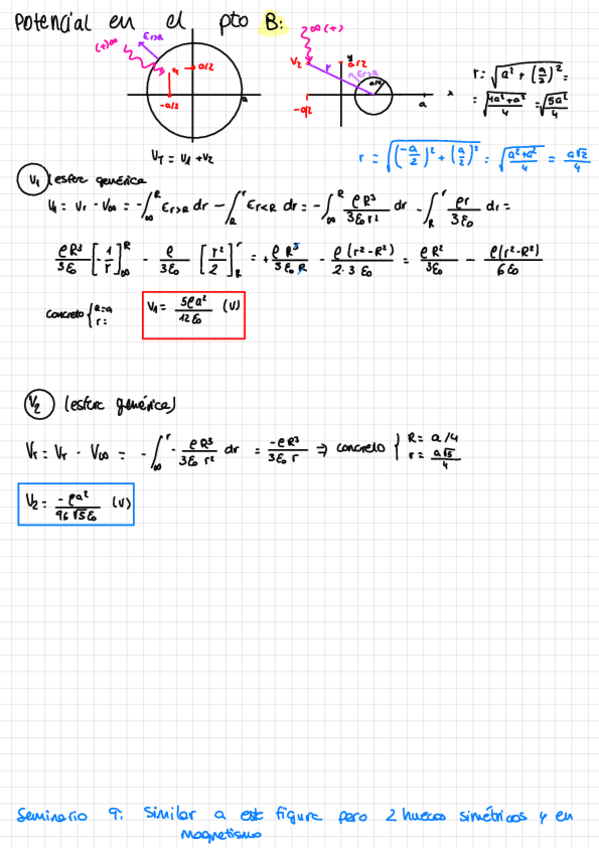 Potencial en el pto B:
(+)∞ Er>R V1 a/2 -a/2 a
∞(+) V2 r y a/2 Er>R a/4 -a/2 a x
r = √(a² + (a/2)²) =
= √((4a²+a²)/4) = √(5a²/4)
VT = V1 + V2
r = √((-a/2)² + (a/2)²) = √((a²+a²)/4) = a√2/4
V1 (esfera genérica)
V1 = Vr - V∞ = -∫∞^R Er>R dr - ∫R^r Er<R dr = -∫∞^R ρR³/3ε0 r² dr - ∫R^r ρr/3ε0 dr =
ρR³/3ε0 [-1/r]∞^R - ρ/3ε0 [r²/2]R^r = + ρR³/3ε0 R - ρ(r²-R²)/2·3ε0 = ρR²/3ε0 - ρ(r²-R²)/6ε0
concreto { R=a
r=
V1 = 5ρa²/12ε0 (V)
V2 (esfera genérica)
Vr = Vr - V∞ = -∫∞^r - ρR³/3ε0 r² dr = -ρR³/3ε0 r ⇒ concreto { R = a/4
r = a√5/4
V2 = -ρa²/96√5ε0 (V)
Seminario 9: Similar a esta figura pero 2 huecos simétricos y en
magnetismo